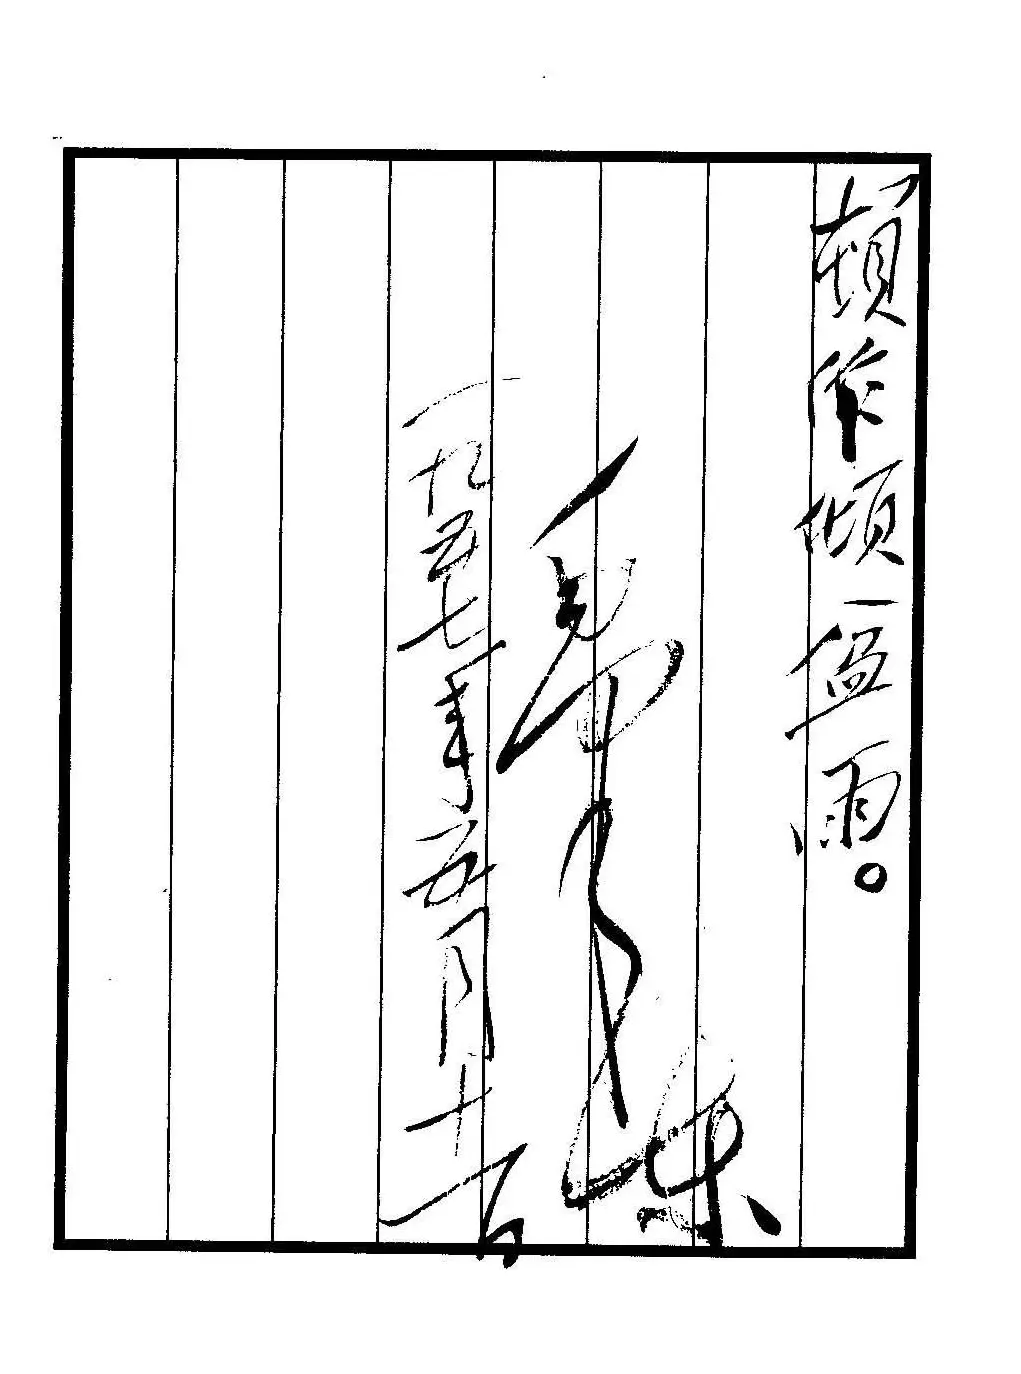 頓作傾盆雨。
毛澤東
一九五七年五月十一日